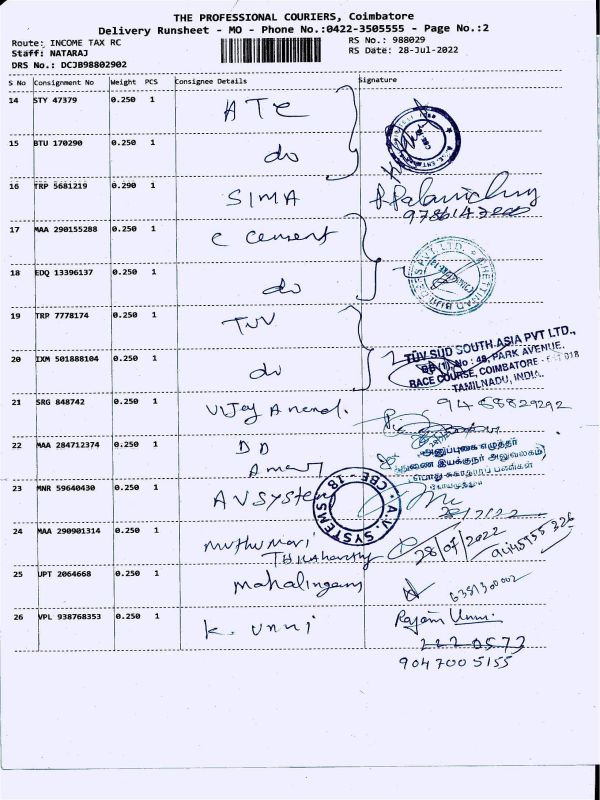 THE PROFESSIONAL COURIERS, Coimbatore
Delivery Runsheet - MO - Phone No.:0422-3505555 - Page No.:2
Route: INCOME TAX RC
RS No.: 988029
Staff: NATARAJ
RS Date: 28-Jul-2022
DRS No.: DCJB98802902
S No Consignment No Weight PCS Consignee Details Signature
14 STY 47379 0.250 1 ATC
15 BTU 170290 0.250 1 do
16 TRP 5681219 0.290 1 SIMA
17 MAA 290155288 0.250 1 C Cement
18 EDQ 13396137 0.250 1 do
19 TRP 7778174 0.250 1 TUV
20 IXM 501888104 0.250 1 do
TÜV SÜD SOUTH ASIA PVT LTD.,
No : 48, PARK AVENUE,
RACE COURSE, COIMBATORE -
TAMILNADU, INDIA.
21 SRG 848742 0.250 1 Vijay Anand. 9488829292
22 MAA 284712374 0.250 1 DD
அலுவலகம்
23 MNR 59640430 0.250 1 AV System
A.V. SYSTEMS CBE-18
24 MAA 290901314 0.250 1 Muthu Mari 28/07/2022
25 UPT 2064668 0.250 1 Mahalingam
26 VPL 938768353 0.250 1 K. Unni Rajam Unni
2220573
9047005155